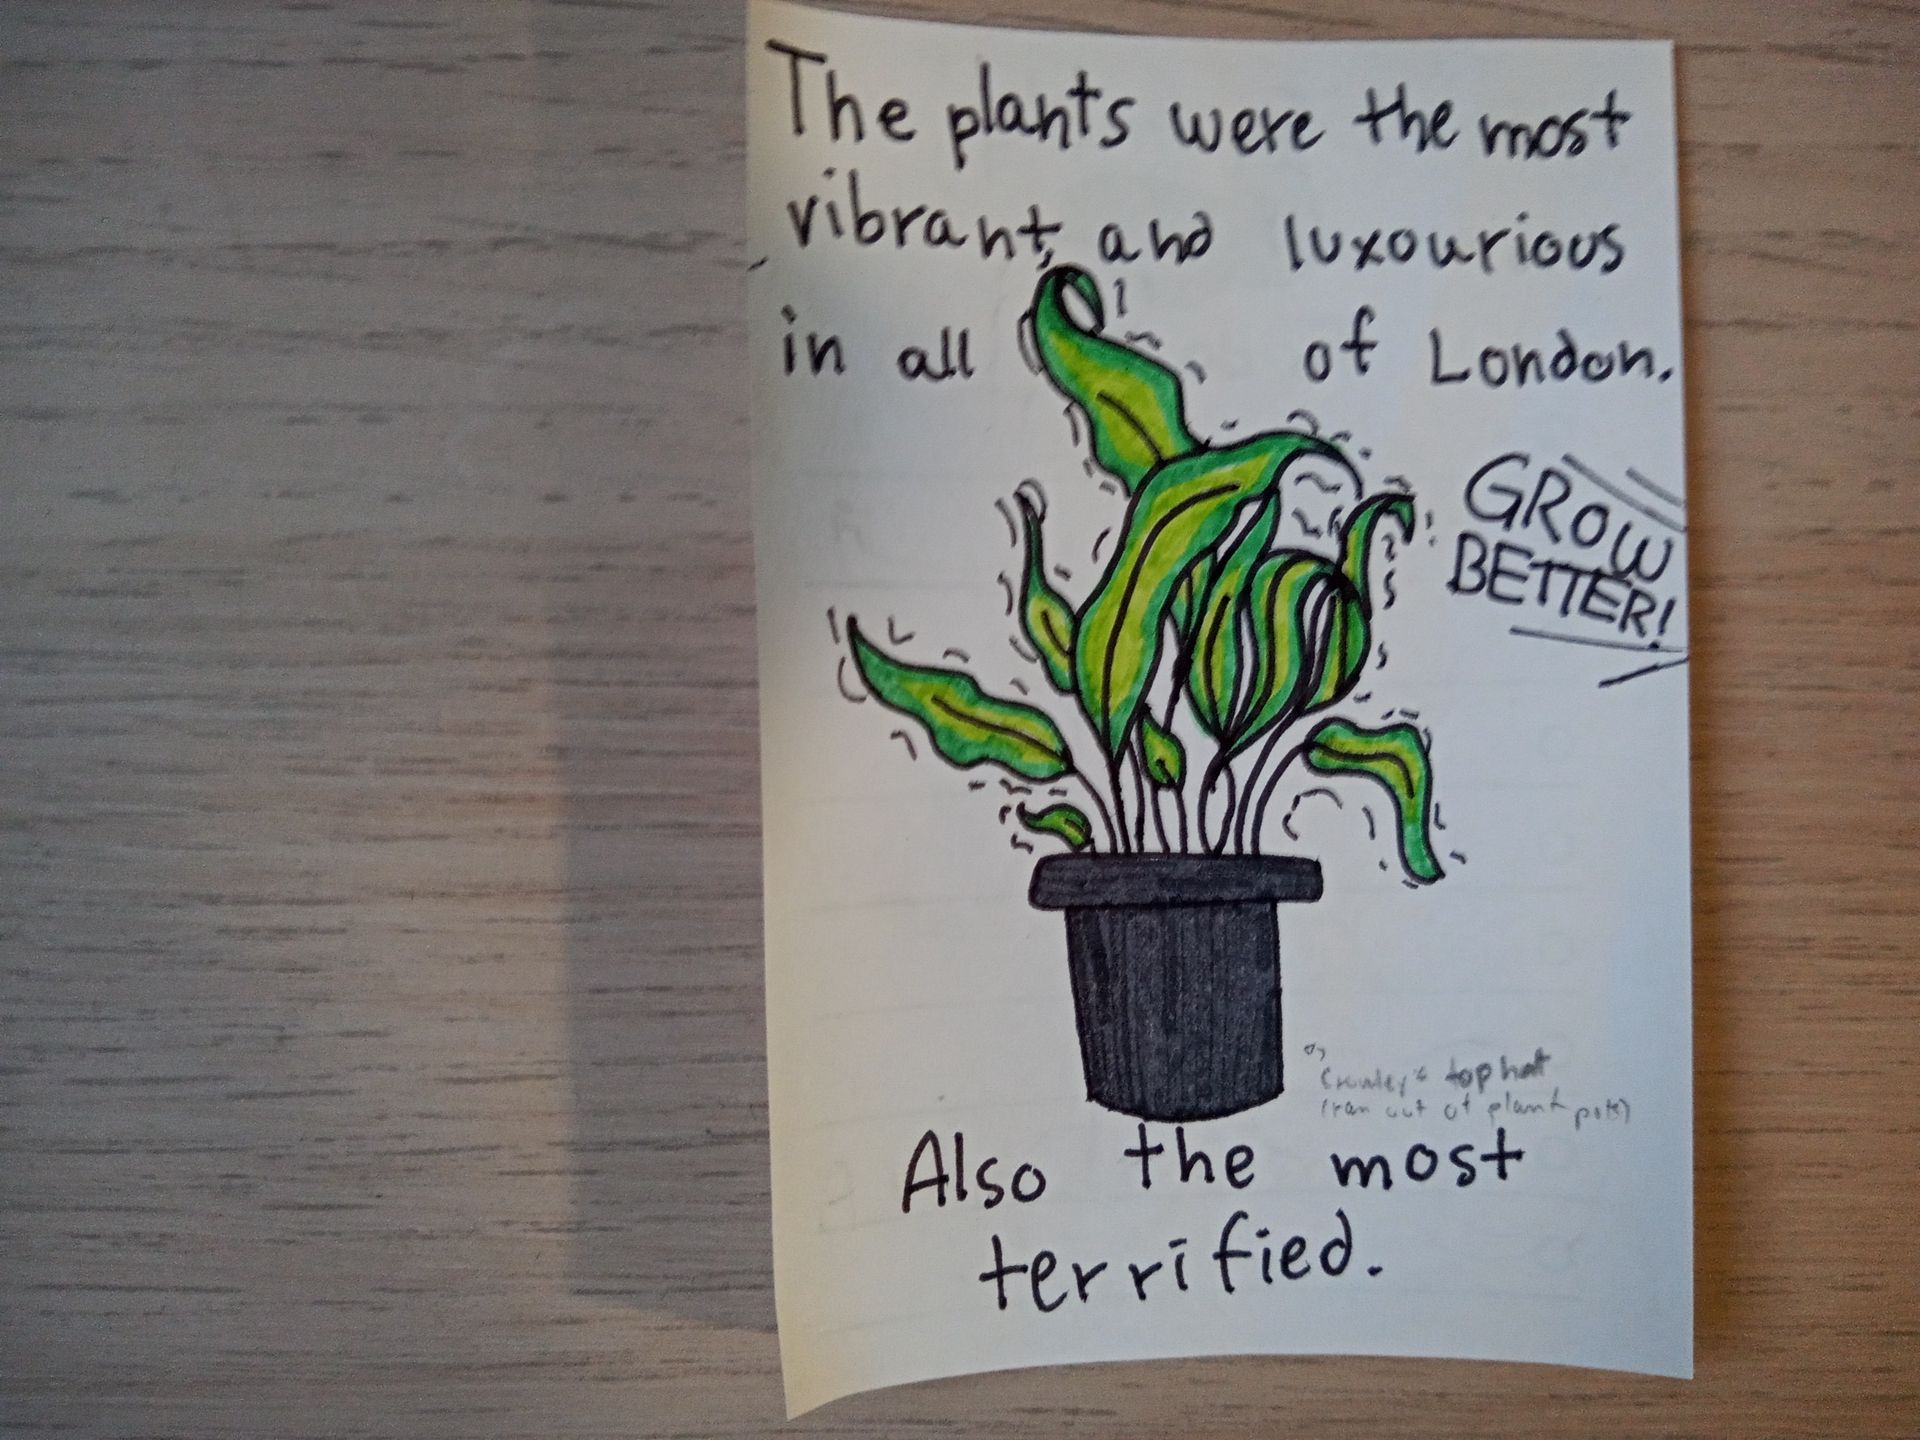 The plants were the most
vibrant, and luxourious
in all of London.
GROW
BETTER!
Crowley's top hat
(ran out of plant pots)
Also the most
terrified.